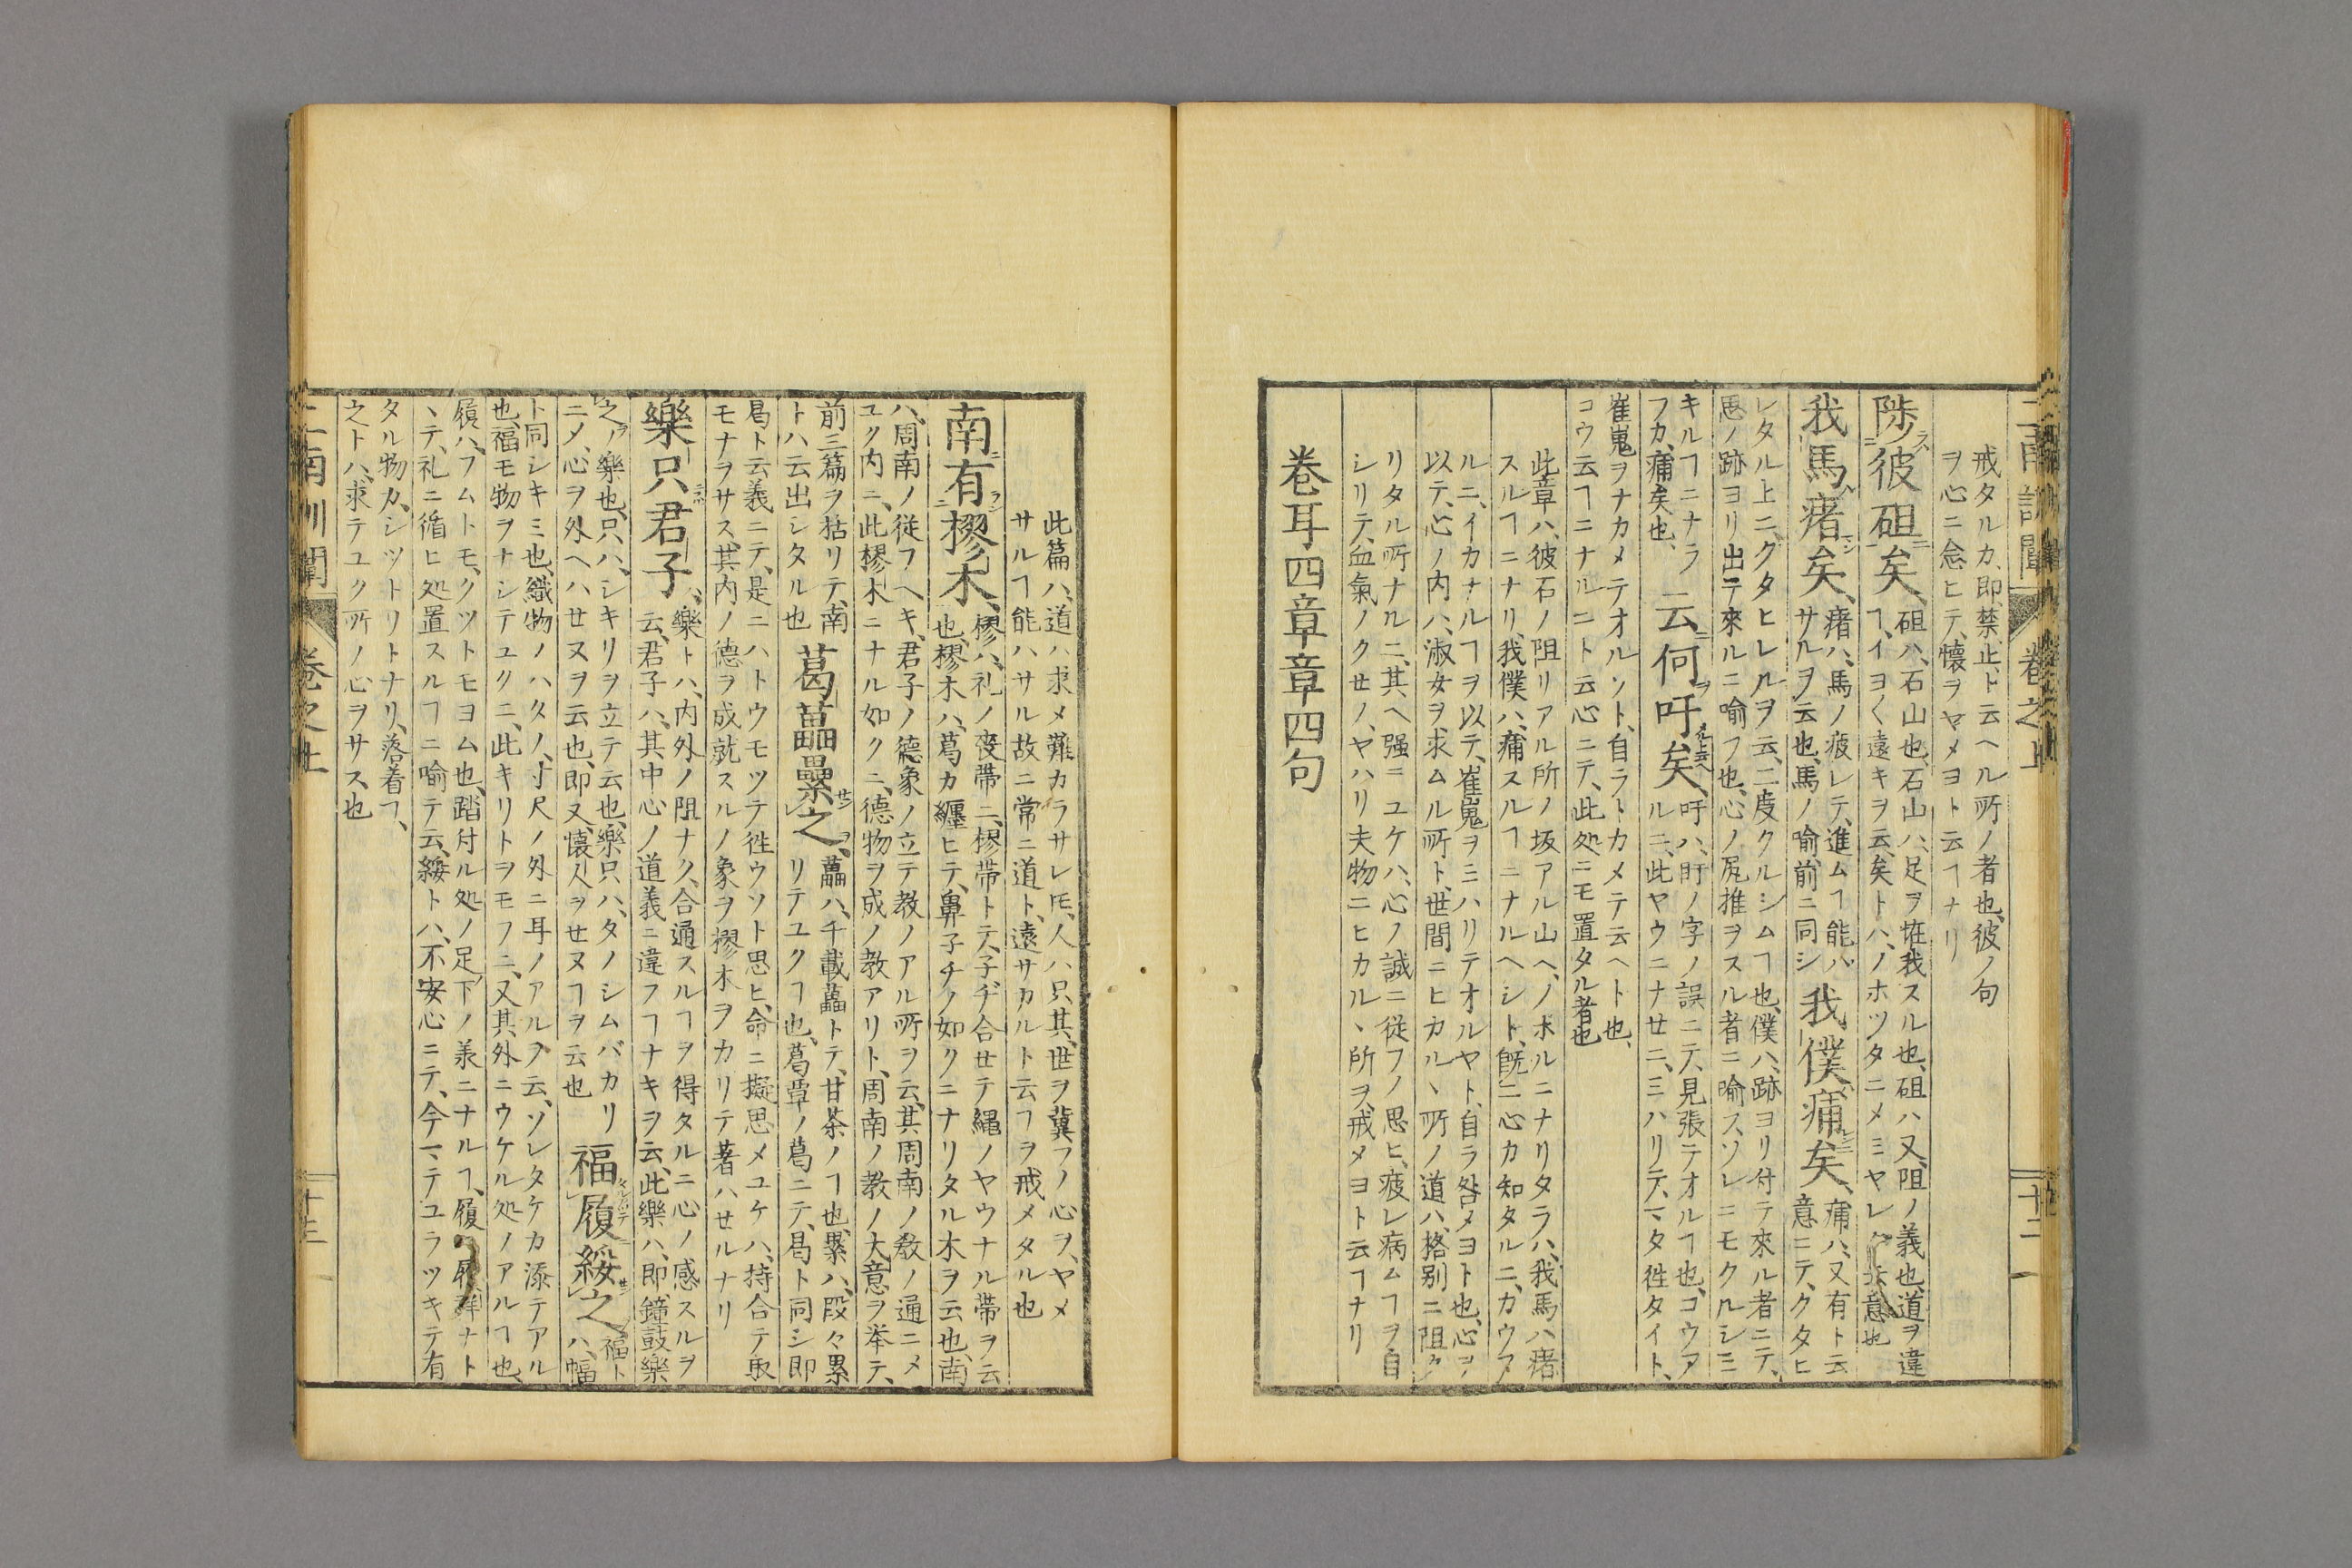 二南訓聞 卷之上 十二
戒タルカ、即、禁止ト云ヘル所ノ者也、彼ノ句
ヲ心ニ念ヒテ、懐ヲヤメヨト云ヿナリ
陟彼砠矣、
砠ハ、石山也、石山ハ、足ヲ
砠ハ、又、阻ノ義也、道ヲ違
ヿ、イヨ〱遠キヲ云、矣トハ、ノホツタニメミヤレ
我馬瘏矣、
瘏ハ、馬ノ疲レテ、進ムヿ能ハ
サルヲ云也、馬ノ喻、前ニ同シ
我僕痡矣、
痡ハ、又有ト云
意ニテ、クタヒ
レタル上ニ、グタヒレルヲ云、二度クルシムヿ也、僕ハ、跡ヨリ付テ來ル者ニテ、
思ノ跡ヨリ出テ來ルニ喻フ也、心ノ尻推ヲスル者ニ喻ス、ソレニモクルシミ
キルヿニナラ
フカ、痡矣也、
云何吁矣、
吁ハ、盱ノ字ノ誤ニテ、見張テオルヿ也、コウア
ルニ、此ヤウニナセニ、ミハリテ、マタ徃タイト、
崔嵬ヲナカメテオルソト、自ラトカメテ云ヘト也、
コウ云ヿニナルニト云心ニテ、此処ニモ置タル者也
此章ハ、彼石ノ阻リアル所ノ坂アル山ヘ、ノホルニナリタラハ、我馬ハ瘏
スルヿニナリ、我僕ハ、痡スルヿニナルヘシト、既ニ心カ知タルニ、カウア
ルニ、イカナルヿヲ以テ、崔嵬ヲミハリテオルヤト、自ラ咎メヨト也、心ヲ
以テ、心ノ内ハ、淑女ヲ、求ムル所ト、世間ニヒカルヽ所ノ道ハ、格别ニ阻
リタル所ナルニ、其ヘ强ニユケハ、心ノ誠ニ従フノ思ヒ、疲レ病ムヿヲ自
シリテ、血氣ノクセノ、ヤハリ夫物ニヒカルヽ所ヲ、戒メヨト云ヿナリ
卷耳四章章四句
此篇ハ、道ハ求メ難カラサレ𪜈、人ハ只其、世ヲ冀フノ心ヲ、ヤメ
サルヿ能ハサル故ニ常ニ道ト、遠サカルト云ヿヲ戒メタル也
南有樛木、
樛ハ、礼ノ喪帶ニ、樛帶トテ、子ヂ合セテ縄ノヤウナル帶ヲ云
也、樛木ハ、葛カ纏ヒテ、鼻子チノ如クニナリタル木ヲ云也、南
ハ、周南ノ従フヘキ、君子ノ德象ノ立テ教ノアル所ヲ云、其周南ノ教ノ通ニメ
ユク内ニ、此樛木ニナル如クニ、德物ヲ成ノ教アリト、周南ノ教ノ大意ヲ挙テ、
前三篇ヲ括リテ、南
トハ云出シタル也
葛藟纍之、
藟ハ、千載藟トテ、甘茶ノヿ也、纍ハ、段々累
リテユクヿ也、葛覃ノ葛ニテ、曷ト同シ即
曷ト云義ニテ、是ニハトウモツテ徃ウソト思ヒ、命ニ擬思メユケハ、持合テ取
モナヲサス、其内ノ德ヲ成就スルノ象ヲ樛木ヲカリテ著ハセルナリ
樂只君子、
樂トハ、内外ノ阻ナク、合通スルヿヲ得タルニ心ノ感スルヲ
云、君子ハ、其中心ノ道義ニ違フヿナキヲ云、此樂ハ、即、鐘鼓樂
之ノ樂也、只ハ、シキリヲ立テ云也、樂只ハ、タノシムバカリ
ニメ、心ヲ外ヘハセヌヲ云也、即又、懐人ヲセヌヿヲ云也
福履綏之、
福ト
ハ、幅
ト同シキミ也、織物ノハタノ、寸尺ノ外ニ耳ノアルヲ云、ソレタケカ添テアル
也、福モ物ヲナシテユクニ、此キリトヲモフニ、又其外ニウケル処ノアルヿ也、
履ハ、フムトモ、クツトモヨム也、踏付ル処ノ足下ノ羕ニナルヿ、履
ヽテ、礼ニ循ヒ処置スルヿニ喻テ云、綏トハ、不安心ニテ、今マテユラツキテ有
タル物カ、シツトリトナリ、落着ヿ、
之トハ、求テユク所ノ心ヲサス、也
二南訓聞 卷之上 十三